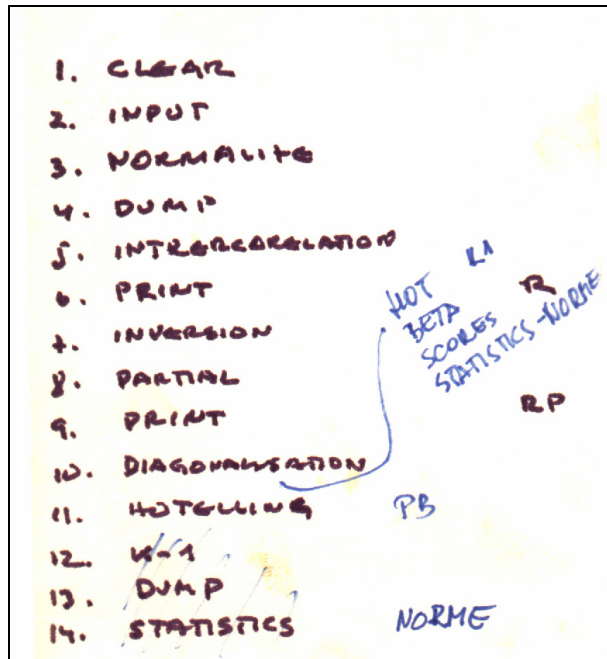 1. CLEAR
2. INPUT
3. NORMALITE
4. DUMP
5. INTRERCORELATION
6. PRINT
7. INVERSION
8. PARTIAL
9. PRINT
10. DIAGONALISATION
11. HOTELLING PB
12. K-1
13. DUMP
14. STATISTICS NORME
HOT
BETA R
SCORES
STATISTICS-NORME
RP